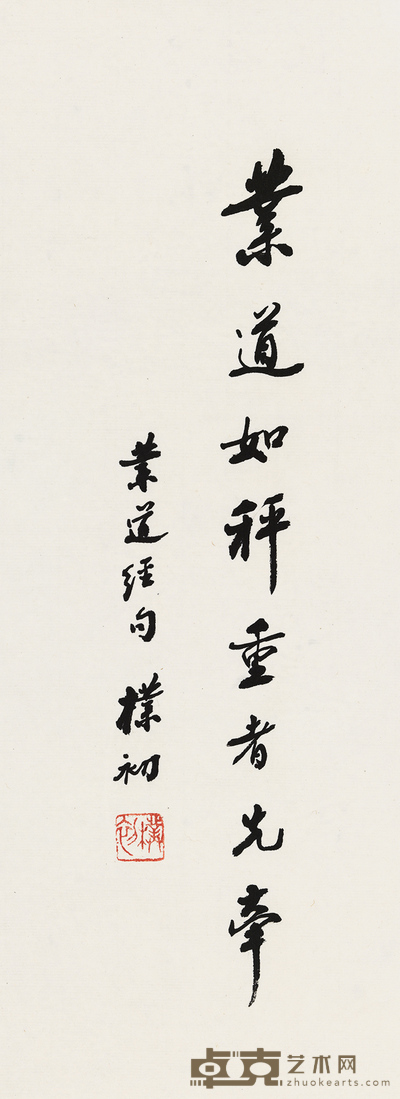 業道如秤重者先牽
業道經句 樸初
樸初
卓克艺术网
zhuokearts.com